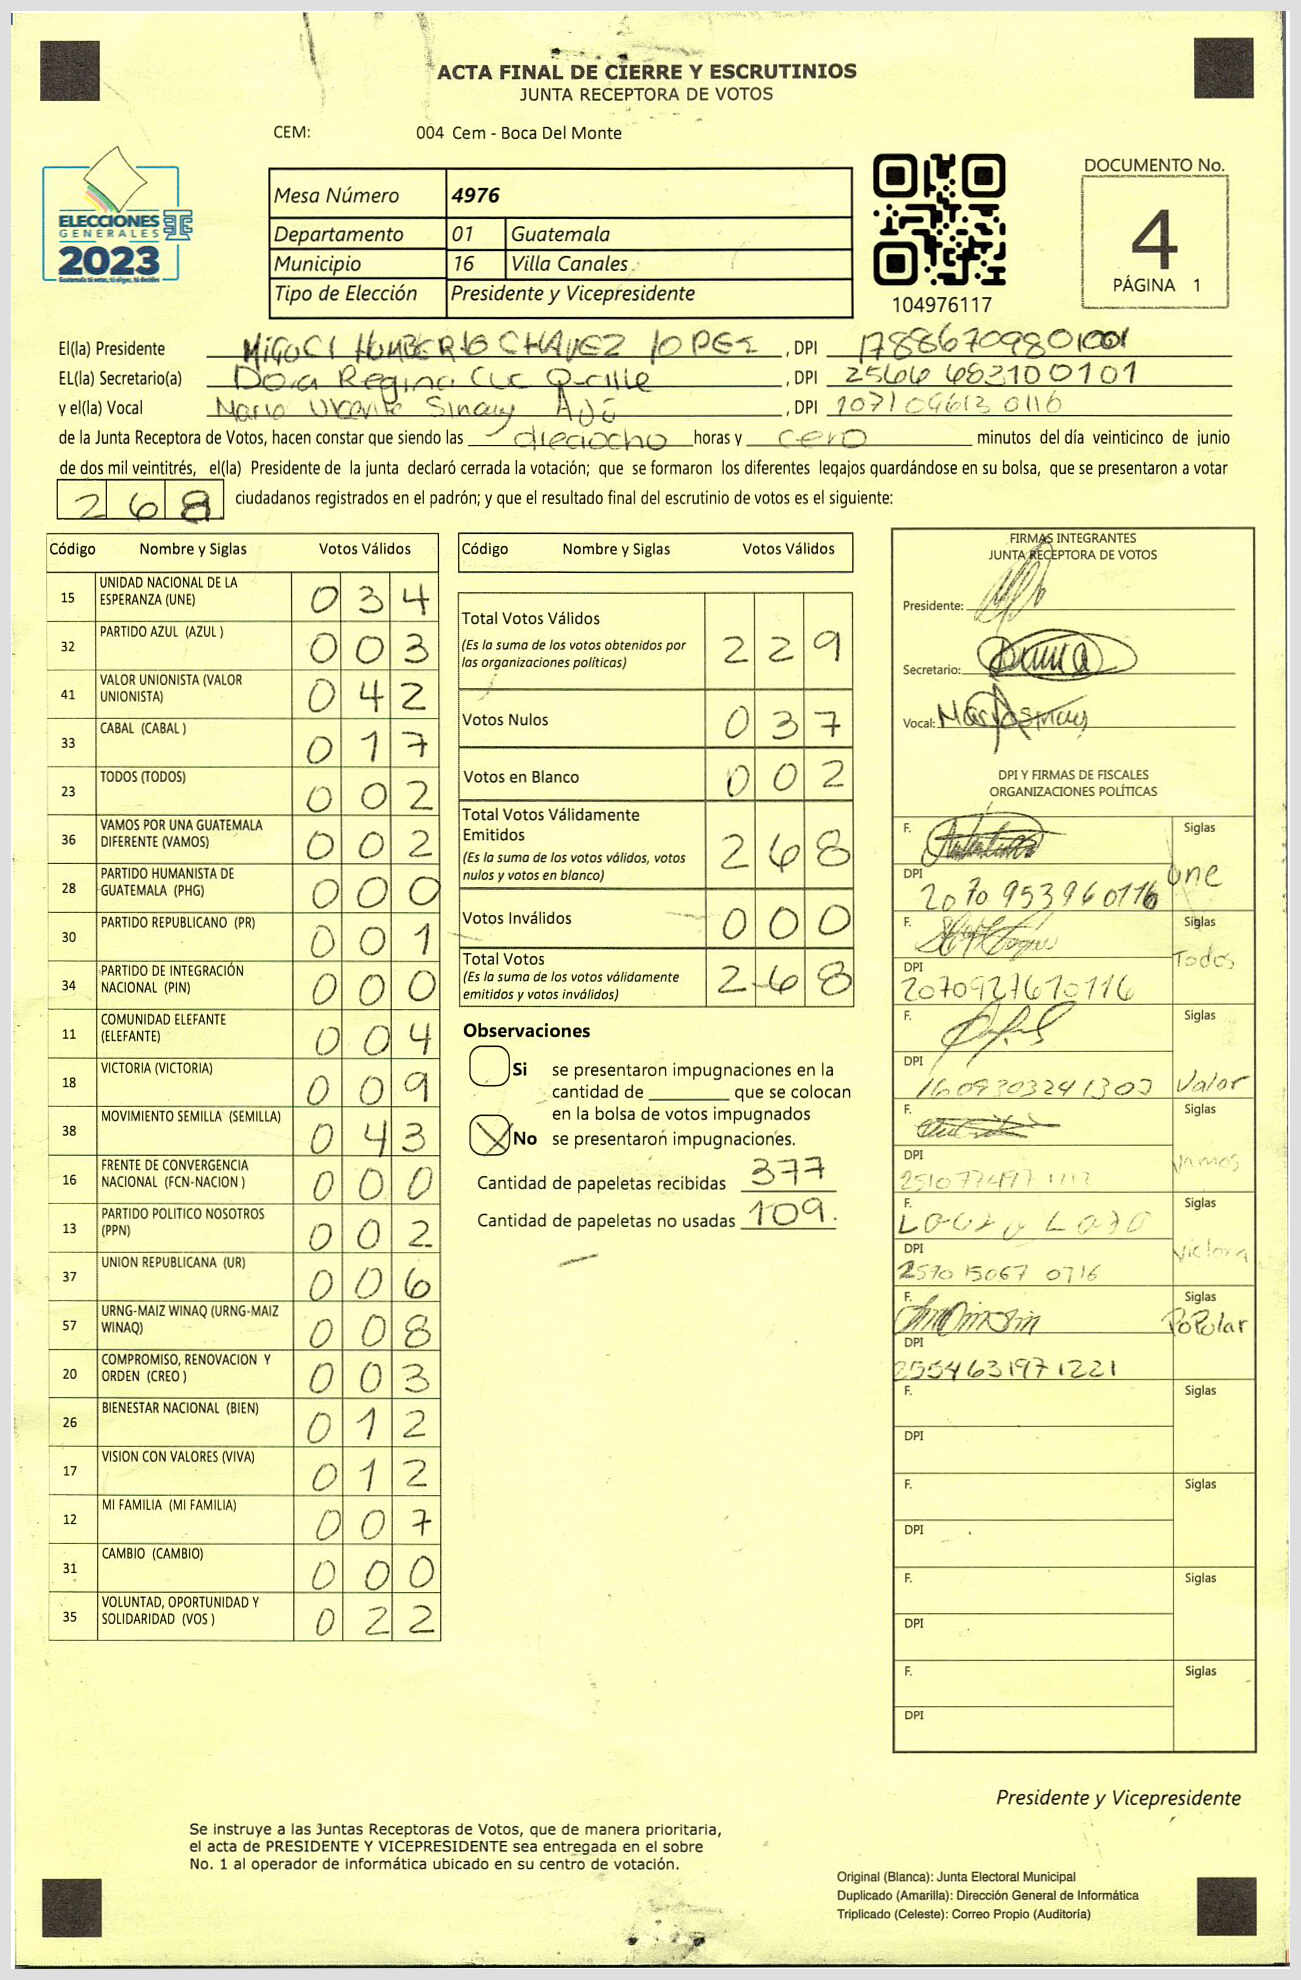 ACTA FINAL DE CIERRE Y ESCRUTINIOS
JUNTA RECEPTORA DE VOTOS
CEM: 004 Cem - Boca Del Monte
ELECCIONES
GENERALES
2023
Mesa Número 4976
Departamento 01 Guatemala
Municipio 16 Villa Canales
Tipo de Elección Presidente y Vicepresidente
104976117
DOCUMENTO No.
4
PÁGINA 1
El(la) Presidente HUMBERTO CHAVEZ LOPEZ, DPI
EL(la) Secretario(a) Dora Regina, DPI 2566 683100101
y el(la) Vocal Mario Vicente Sinay Ajú, DPI
de la Junta Receptora de Votos, hacen constar que siendo las dieciocho horas y cero minutos del día veinticinco de junio
de dos mil veintitrés, el(la) Presidente de la junta declaró cerrada la votación; que se formaron los diferentes legajos guardándose en su bolsa, que se presentaron a votar
268 ciudadanos registrados en el padrón; y que el resultado final del escrutinio de votos es el siguiente:
Código Nombre y Siglas Votos Válidos
15 UNIDAD NACIONAL DE LA ESPERANZA (UNE) 034
32 PARTIDO AZUL (AZUL ) 003
41 VALOR UNIONISTA (VALOR UNIONISTA) 042
33 CABAL (CABAL ) 017
23 TODOS (TODOS) 002
36 VAMOS POR UNA GUATEMALA DIFERENTE (VAMOS) 002
28 PARTIDO HUMANISTA DE GUATEMALA (PHG) 000
30 PARTIDO REPUBLICANO (PR) 001
34 PARTIDO DE INTEGRACIÓN NACIONAL (PIN) 000
11 COMUNIDAD ELEFANTE (ELEFANTE) 004
18 VICTORIA (VICTORIA) 009
38 MOVIMIENTO SEMILLA (SEMILLA) 043
16 FRENTE DE CONVERGENCIA NACIONAL (FCN-NACION ) 000
13 PARTIDO POLITICO NOSOTROS (PPN) 002
37 UNION REPUBLICANA (UR) 006
57 URNG-MAIZ WINAQ (URNG-MAIZ WINAQ) 008
20 COMPROMISO, RENOVACION Y ORDEN (CREO ) 003
26 BIENESTAR NACIONAL (BIEN) 012
17 VISION CON VALORES (VIVA) 012
12 MI FAMILIA (MI FAMILIA) 007
31 CAMBIO (CAMBIO) 000
35 VOLUNTAD, OPORTUNIDAD Y SOLIDARIDAD (VOS ) 022
Código Nombre y Siglas Votos Válidos
Total Votos Válidos 229
(Es la suma de los votos obtenidos por
las organizaciones políticas)
Votos Nulos 037
Votos en Blanco 002
Total Votos Válidamente
Emitidos 268
(Es la suma de los votos válidos, votos
nulos y votos en blanco)
Votos Inválidos 000
Total Votos 268
(Es la suma de los votos válidamente
emitidos y votos inválidos)
Observaciones
Si se presentaron impugnaciones en la
cantidad de ________ que se colocan
en la bolsa de votos impugnados
No se presentaron impugnaciones.
Cantidad de papeletas recibidas 377
Cantidad de papeletas no usadas 109.
FIRMAS INTEGRANTES
JUNTA RECEPTORA DE VOTOS
Presidente:
Secretario:
Vocal:
DPI Y FIRMAS DE FISCALES
ORGANIZACIONES POLÍTICAS
F. Siglas
DPI 2070 953960116 Une
F. Siglas
DPI 2070927610116 Todos
F. Siglas
DPI Valor
F. Siglas
DPI Vamos
F. Siglas
DPI 2590 15067 0716 Victoria
F. Siglas
DPI 2554631971221 Popular
F. Siglas
DPI
F. Siglas
DPI
F. Siglas
DPI
F. Siglas
DPI
Presidente y Vicepresidente
Se instruye a las Juntas Receptoras de Votos, que de manera prioritaria,
el acta de PRESIDENTE Y VICEPRESIDENTE sea entregada en el sobre
No. 1 al operador de informática ubicado en su centro de votación.
Original (Blanca): Junta Electoral Municipal
Duplicado (Amarilla): Dirección General de Informática
Triplicado (Celeste): Correo Propio (Auditoría)